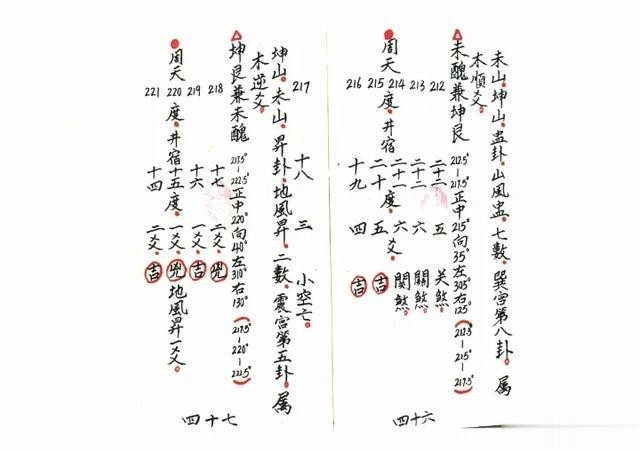 未山。坤山。蛊卦。山風蛊。七數。巽宮第八卦。属
木順爻。
未醜兼坤艮 212.5°-217.5°正中215°向35°左305°右125°(212.5°-215°-217.5°)
212 二十三 五 关煞
213 二十二 六 關煞。
周天214度。井宿二十一度。六爻。關煞。
215 二十 五 吉
216 十九 四 吉
四十六
217 十八 三 小空亡。
坤山。未山。昇卦。地風昇。二數。震宮第五卦。属
木逆爻。
坤艮兼未醜 217.5°-222.5°正中220°向40°左310°右130°(217.5°-220°-222.5°)
218 十七 二爻。兇
219 十六 一爻。吉
周天220度。井宿十五度。一爻。兇 地風昇一爻。
221 十四 二爻。吉
四十七